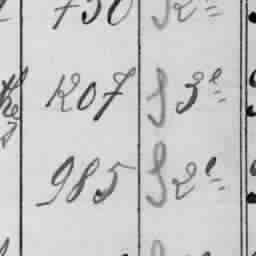 750 § 2e
1207 § 3e
985 § 2e